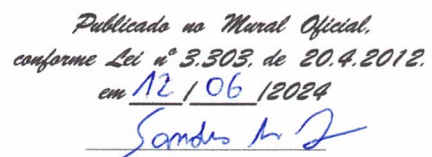 Publicado no Mural Oficial,
conforme Lei nº 3.303, de 20.4.2012.
em 12 / 06 /2024